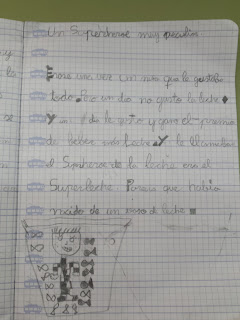 Un Superheroe muy peculiar
Erase una vez un niño que le gustaba
todo. Pero un dia no gusto la leche
Y un dia le reto y gano el premio
de beber más leche. Y le llamaban
el Superheroe de la leche era el
Superleche. Parecia que habia
nacido de un vaso de leche.